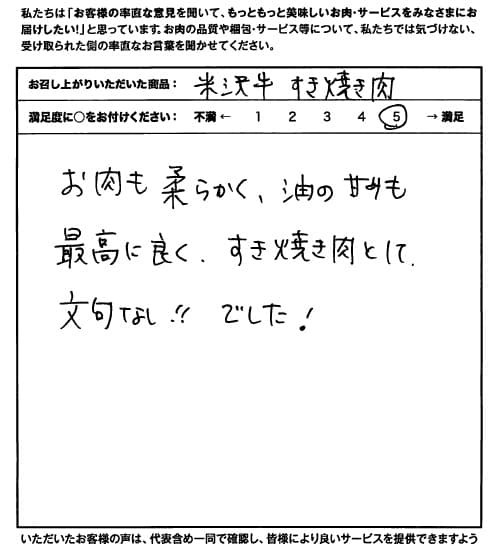 私たちは「お客様の率直な意見を聞いて、もっともっと美味しいお肉・サービスをみなさまにお
届けしたい！」と思っています。お肉の品質や梱包・サービス等について、私たちでは気づけない、
受け取られた側の率直なお言葉を聞かせてください。
お召し上がりいただいた商品： 米沢牛 すき焼き肉
満足度に○をお付けください： 不満 ← 1 2 3 4 5 → 満足
お肉も柔らかく、油の甘みも
最高に良く、すき焼き肉として、
文句なし!! でした!
いただいたお客様の声は、代表含め一同で確認し、皆様により良いサービスを提供できますよう